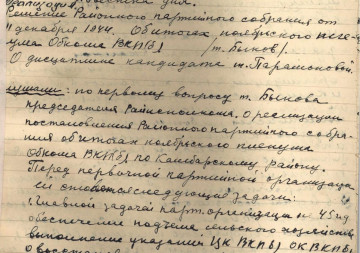 Решение Районного партийного собрания от
декабря 1944. Об итогах ноябрьского плену-
ума Обкома ВКП(б) /т. Быков/.
О дисциплине кандидата т. Парамоновой.
по первому вопросу т. Быкова
председателя Райисполкома. О реализации
постановления Районного партийного собра-
ния об итогах ноябрьского пленума
Обкома ВКП(б) по Камбарскому району.
Перед первичной партийной организаци
ей стоят следующие задачи:
Главной задачей парт.организации в 45 году
обеспечение подъема сельского хозяйства
выполнение указаний ЦК ВКП(б) ОК ВКП(б)